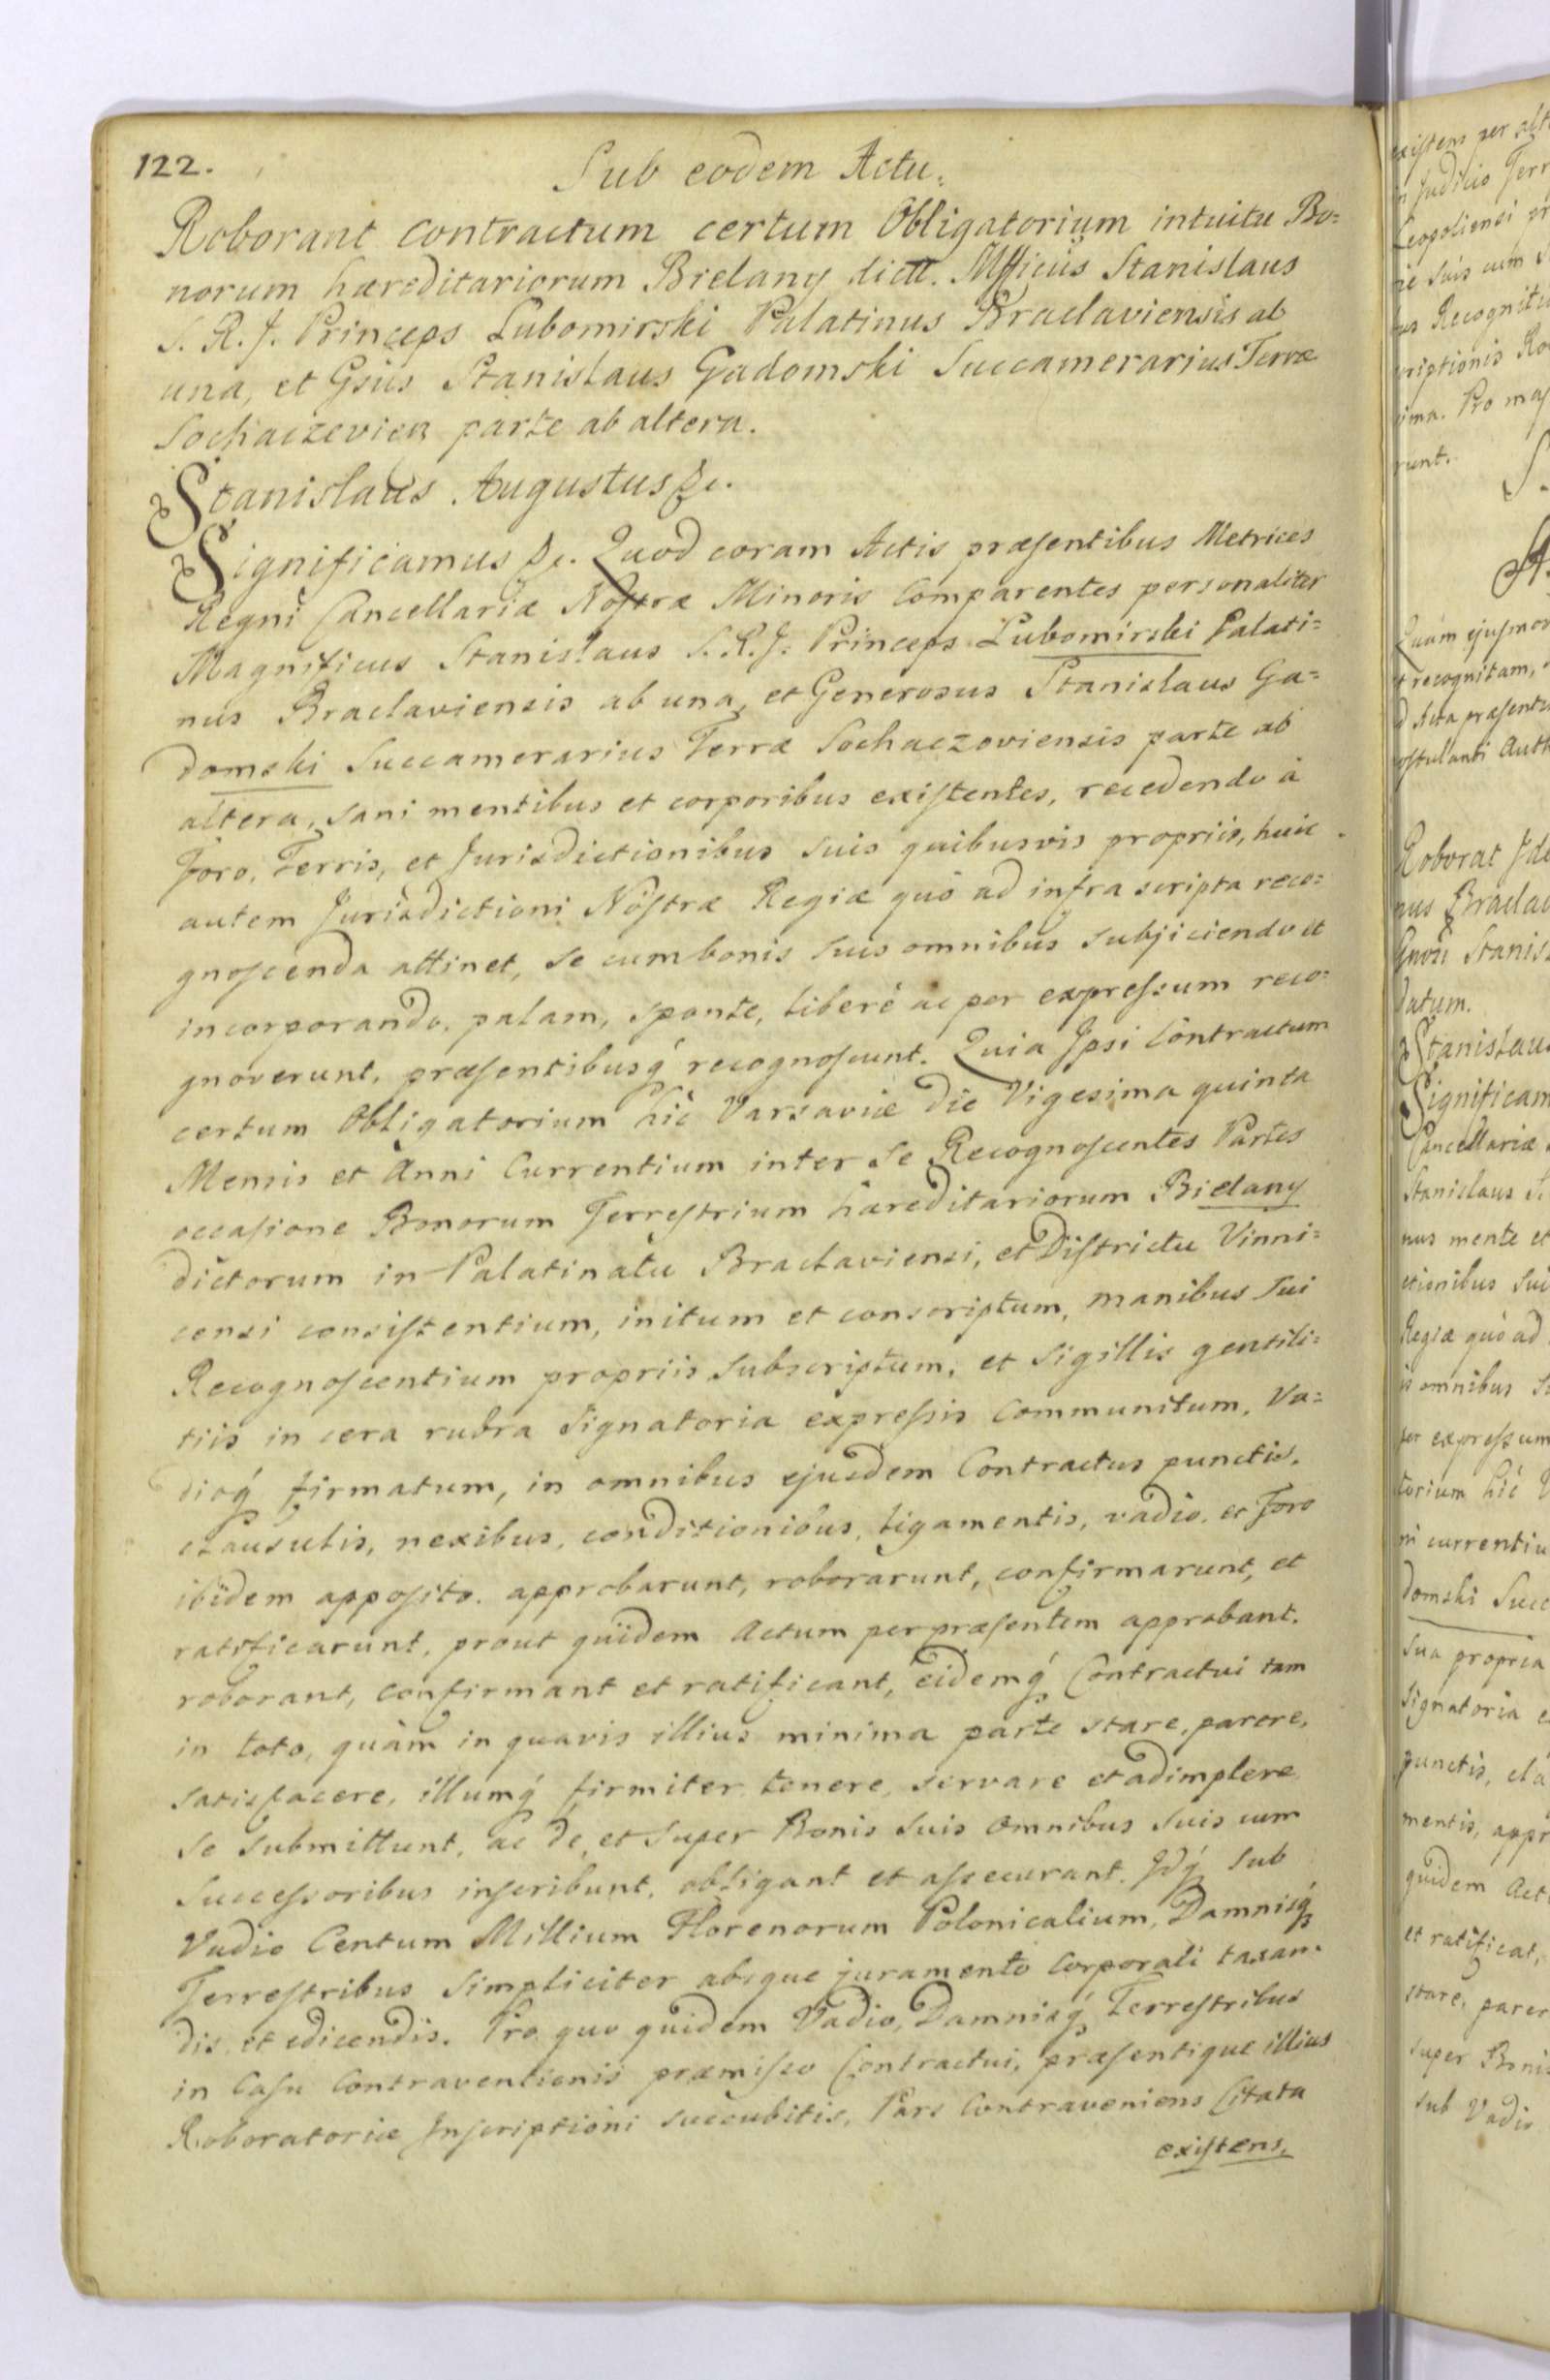 122.
Sub eodem Actu.
Roborant contractum certum Obligatorium intuitu Bo=
norum hæreditariorum Bielany dictt. Mfficus Stanislaus
S. R. J. Princeps Lubomirski Palatinus Braclaviensis ab
una, et Gsus Stanislaus Gadomski Succamerarius Terræ
Sochaczevien parte ab altera.
Stanislaus Augustus &c.
Significamus &c. Quod coram Actis præsentibus Metrices
Regni Cancellariæ Nostræ Minoris Comparentes personaliter
Magnificus Stanislaus S. R. J. Princeps Lubomirski Palati=
nus Braclaviensis ab una, et Generosus Stanislaus Ga=
domski Succamerarius Terræ Sochaczoviensis parte ab
altera, sani mentibus et corporibus existentes, recedendo à
Foro, Terris, et Jurisdictionibus suis quibusvis propriis, huic
autem Jurisdictioni Nostræ Regiæ quò ad infra scripta reco=
gnoscenda attinet, se cum bonis suis omnibus subjiciendo et
incorporando, palam, sponte, liberè ac per expressum reco=
gnoverunt, præsentibusq́ recognoscunt. Quia Ipsi Contractum
certum Obligatorium hic Varsaviæ die Vigesima quinta
Mensis et Anni Currentium inter se Recognoscentes Partes
occasione Bonorum Terrestrium hæreditariorum Bielany
dictorum in Palatinatu Braclaviensi, et Districtu Vinni=
censi consistentium, initum et conscriptum, manibus sui
Recognoscentium propriis subscriptum, et sigillis gentili=
tiis in cera rubra Signatoria expressis communitum, Va=
dioq́ firmatum, in omnibus ejusdem Contractus punctis,
clausulis, nexibus, conditionibus, ligamentis, vadio, et Foro
ibidem apposito, approbarunt, roborarunt, confirmarunt, et
ratificarunt, prout quidem Actum per præsentem approbant,
roborant, confirmant et ratificant, eidemq́ Contractui tam
in toto, quàm in quavis illius minima parte stare, parere,
satisfacere, illumq́ firmiter tenere, servare et adimplere
se submittunt, ac de, et super Bonis suis omnibus suis cum
Successoribus inscribunt, obligant et assecurant. Idq́ sub
Vadio Centum Millium Florenorum Polonicalium, Damnisq́
Terrestribus simpliciter absque juramento corporali taxan=
dis, et edicendis. Pro quo quidem Vadio, Damnisq́ Terrestribus
in Casu Contraventionis præmisso Contractui, præsentique illius
Roboratoriæ Inscriptioni succubitis, Pars Contraveniens Citata
existens,
existens per alt
in Judicio Terr
Leopoliensi
Recognitu
riptionis Ro
ima. Pro maj
runt.
Quam ejusmo
recognitam,
Acta præsenti
Roborat Ide
nus Braclav
Stanis
datum.
Stanislaus
Significam
Cancellariæ
Stanislaus
nus mente et
ctionibus sui
Regiæ quò ad
omnibus
per expressum
torium hic
currentiu
domski Succ
sua propria
Signatoria
punctis,
mentis, appr
quidem Act
et ratificat,
stare, parer
super Bonis
sub Vadio